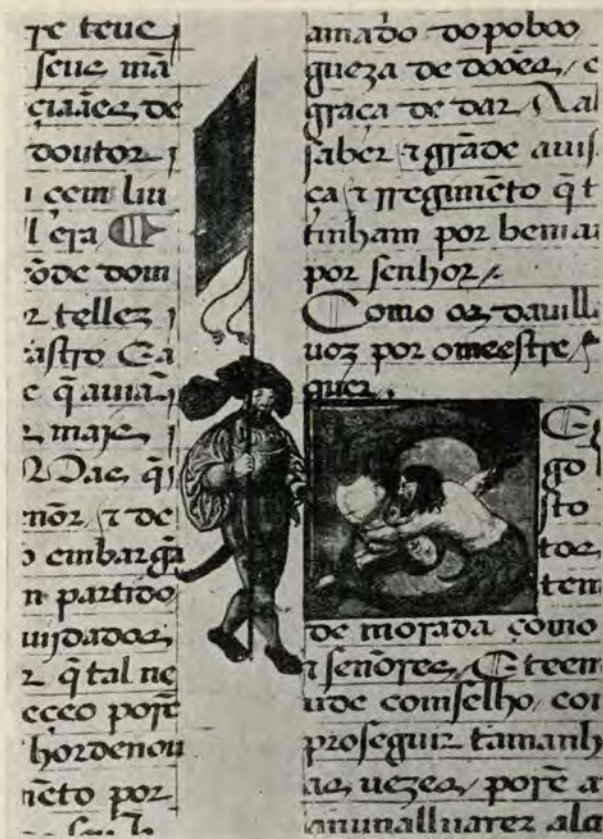 re teue
seus mã
cidães de
doutor
cem liu
l era
õde dom
tellez
astro
e q̃ auiã
mais
Mas q̃
nõr, ⁊ de
embarga
n partido
uijdados
q̃ tal ne
ecco porẽ
hordenou
nẽto por
amado do poboo
gueza de dooẽs, e
graça de dar
saber ⁊ grãde auis
ça ⁊ rregimẽto q̃ t
tinham por bem
por senhor.
Como os dauill
uoz por o meestre,
quer.
go
sto
tos
tem
de morada como
⁊ señores, E teen
ude comselho, con
proseguir tamanh
as uezes, porẽ a
nunalluarez alg